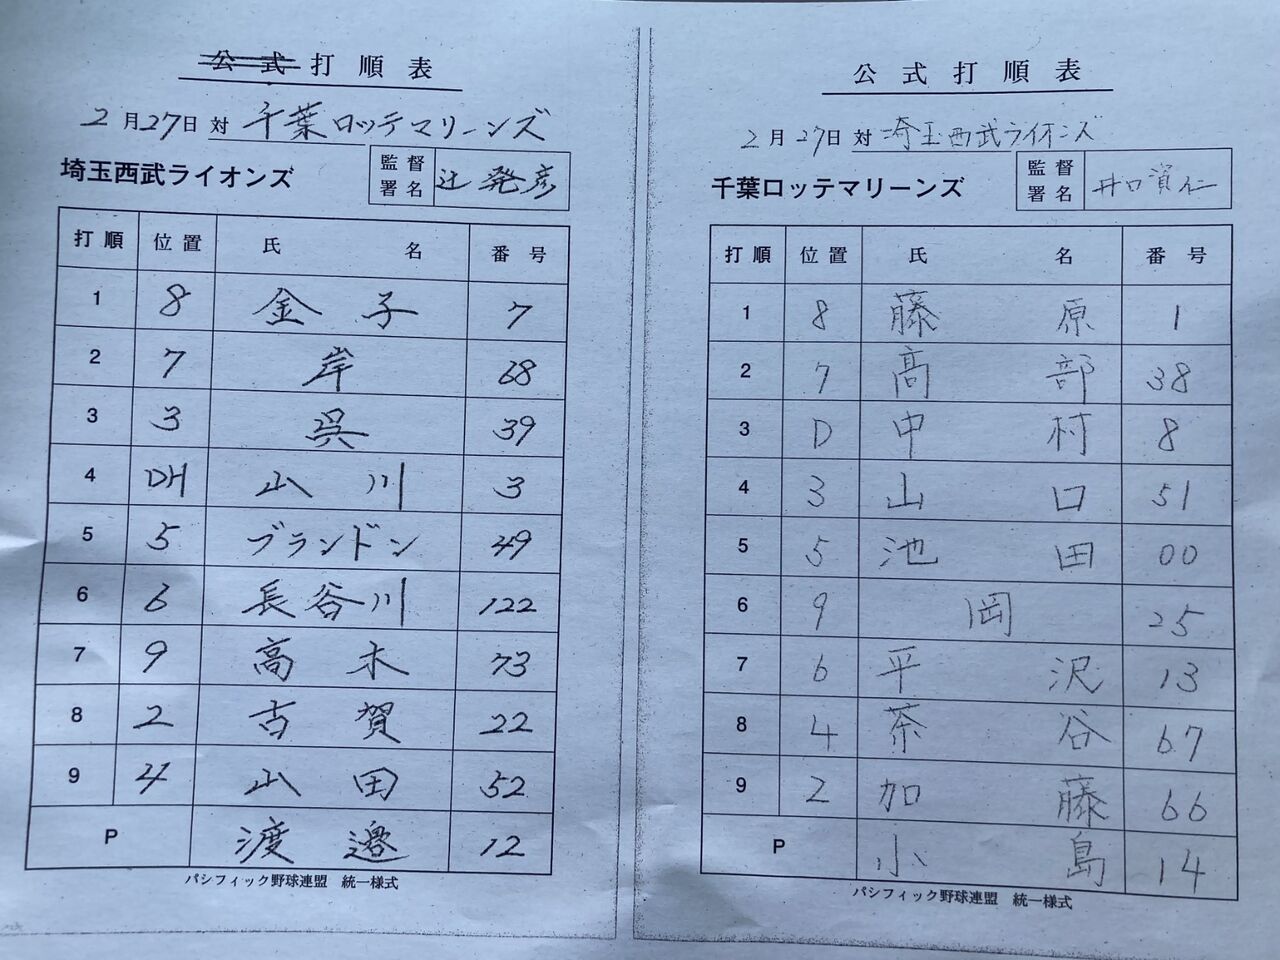 公式打順表
2月27日 対 千葉ロッテマリーンズ
埼玉西武ライオンズ 監督署名 辻 発彦
打順 位置 氏名 番号
1 8 金子 7
2 7 岸 68
3 3 呉 39
4 DH 山川 3
5 5 ブランドン 49
6 6 長谷川 122
7 9 高木 73
8 2 古賀 22
9 4 山田 52
P 渡邉 12
パシフィック野球連盟 統一様式
公式打順表
2月27日 対 埼玉西武ライオンズ
千葉ロッテマリーンズ 監督署名 井口資仁
打順 位置 氏名 番号
1 8 藤原 1
2 7 髙部 38
3 D 中村 8
4 3 山口 51
5 5 池田 00
6 9 岡 25
7 6 平沢 13
8 4 茶谷 67
9 2 加藤 66
P 小島 14
パシフィック野球連盟 統一様式